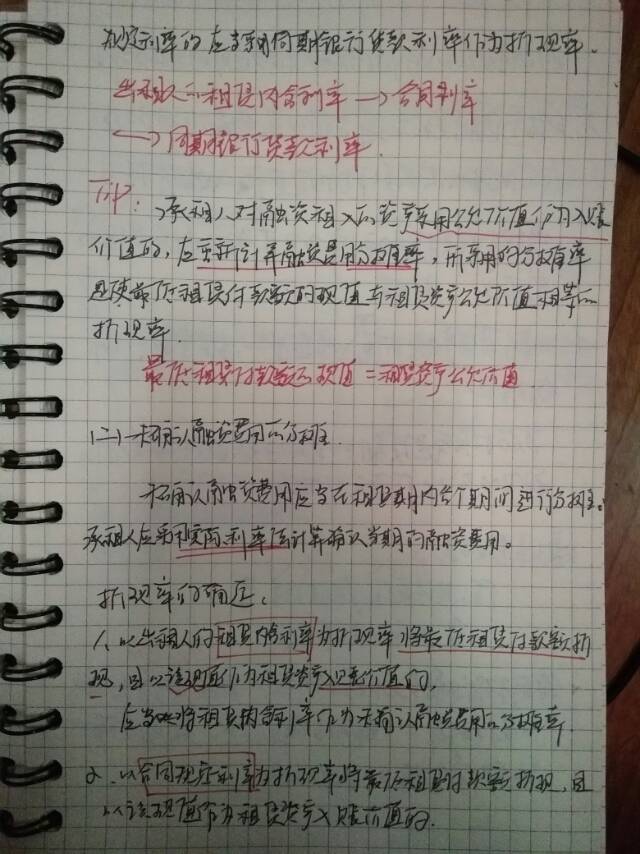 规定利率的应当采用同期银行贷款利率作为折现率。
出租人的租赁内含利率 → 合同利率
→ 同期银行贷款利率
Tip：承租人对融资租入的资产采用公允价值作为入账
价值的，应重新计算融资费用分摊率，所采用的分摊率
是使最低租赁付款额的现值与租赁资产公允价值相等的
折现率.
最低租赁付款额的现值 = 租赁资产公允价值
(二)未确认融资费用的分摊.
未确认融资费用应当在租赁期内各个期间进行分摊。
承租人应采用实际利率法计算确认当期的融资费用。
折现率的确定：
1、以出租人的租赁内含利率为折现率将最低租赁付款额折
现，且以该现值作为租赁资产入账价值的，
应当将租赁内含利率作为未确认融资费用的分摊率
2、以合同规定利率为折现率将最低租赁付款额折现，且
以该现值作为租赁资产入账价值的.